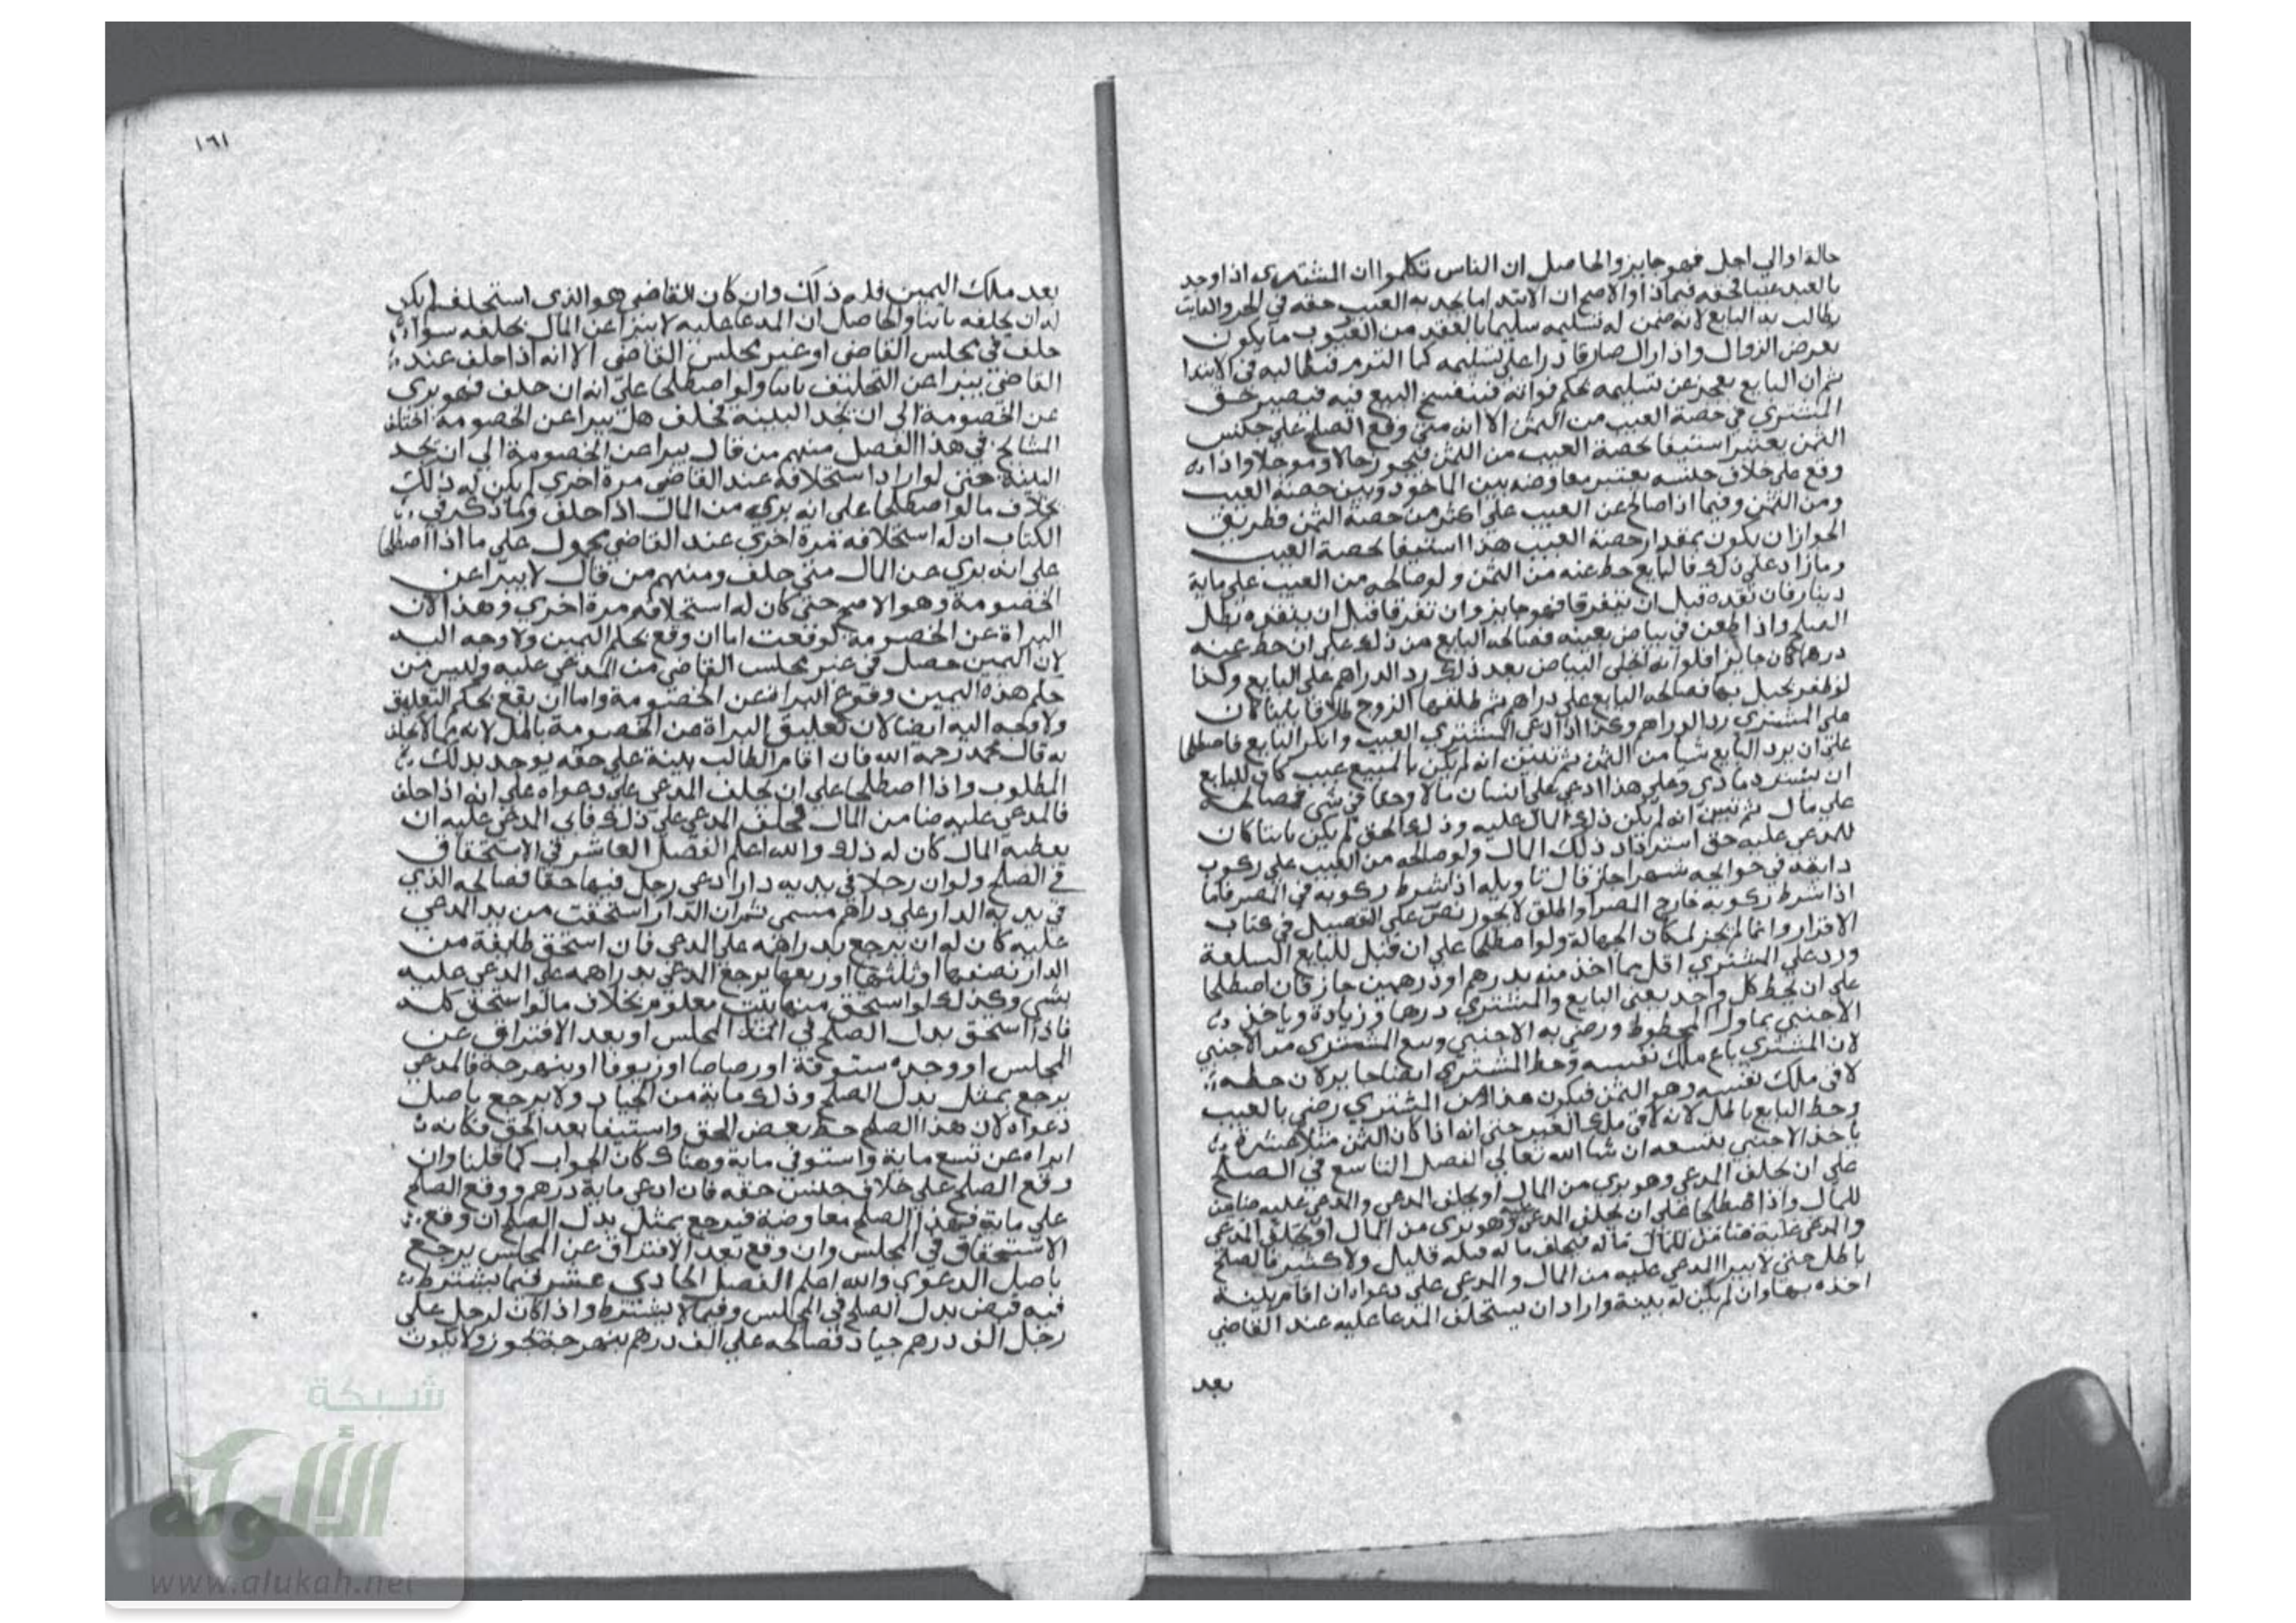 حالة اوالي اجل فهو جايز والحاصل ان الناس تكلموا ان المشتري اذا وجد
بالعبد عيبا لحقه فيماذا والاصح ان الابتدا ما يجد به العيب حقه في الجزو الفايت
يطالب به البايع لانه ضمن له تسليمه سليما بالعقد من العيوب ما يكون
بعرض الزوال واذا زال صار قادرا على تسليمه كما التزم فيطالبه في الابتدا
ثم ان البايع بعجز عن تسليمه بحكم فواته فينفسخ البيع فيه فيصير حق
المشتري في حصة العيب من الثمن الا انه متى وقع الصلح على جنس
الثمن يعتبر استيفا لحصة العيب من الثمن فيجوز حالا وموجلا واذا
وقع على خلاف جنسه يعتبر معاوضه بين الماخوذ وبين حصة العيب
ومن الثمن وفيما اذا صالح عن العيب على اكثر من حصة الثمن فطريق
الجواز ان يكون بمقدار حصة العيب هذا استيفا لحصة العيب
وما زاد على ذلك فالبايع حط عنه من الثمن ولو صالحه من العيب على ماية
دينار فان نقده قبل ان يتفرقا فهو جايز وان تفرقا قبل ان ينقده بطل
الصلح واذا طعن في بياض بعينه فصالحه البايع من ذلك على ان حط عنه
درهما كان جايزا فلو انه انجلى البياض بعد ذلك رد الدراهم على البايع وكذا
لو ظهر بحبل بها فصالحه البايع على دراهم ثم طلقها الزوج طلاقا باينا كان
على المشتري رد الدراهم وكذا اذا ادعى المشتري العيب وانكر البايع فاصطلحا
على ان يرد البايع شيا من الثمن ثم تبين انه لم يكن بالمبيع عيب كان للبايع
ان يسترد ما ادي وعلى هذا ادعي على انسان مالا وحقا في شي فصالحه
على مال ثم تبين انه لم يكن ذلك المال عليه وذلك الحق لم يكن ثابتا كان
للمدعي عليه حق استرداد ذلك المال ولو صالحه من العيب على ركوب
دابته في حوايجه شهرا جاز قال تاويله اذا شرط ركوبه في المصر فاما
اذا شرط ركوبه خارج المصر او اطلق لا يجوز نص على التفصيل في كتاب
الاقرار وانما لم يجز لمكان الجهالة ولو اصطلحا على ان قبل للبايع السلعة
ورد على المشتري اقل مما اخذ منه بدرهم او درهمين جاز فان اصطلحا
على ان يحط كل واحد يعني البايع والمشتري درهما وزيادة وياخذ
الاجنبي بما ورا المحطوط ورضي به الاجنبي وبيع المشتري من الاجنبي
لان المشتري باع ملك نفسه وحط المشتري ايضا جايز لان حطه
لاقى ملك نفسه وهو الثمن فيكون هذا من المشتري رضي بالعيب
وحط البايع باطل لانه لاقى ملك الغير حتى انه اذا كان الثمن مثلا عشرة
ياخذ الاجنبي بتسعه ان شا الله تعالى الفصل التاسع في الصلح
على ان يحلف المدعي وهو بري من المال او يحلف المدعي والمدعي عليه ضامن
للمال واذا اصطلحا على ان يحلف المدعي عليه وهو بري من المال او يحلف المدعي
والمدعي عليه ضامن للمال ما له فيحلف ما له قبله قليل ولا كثير فالصلح
باطل حتى لا يبرا المدعي عليه من المال والمدعي على دعواه ان اقام بينة
اخذه بها وان لم يكن له بينة واراد ان يستحلف المدعا عليه عند القاضي
بعد
١٦١
بعد ملك اليمين فله ذلك وان كان القاضي هو الذي استحلفه لم يكن
له ان يحلفه ثانيا والحاصل ان المدعا عليه لا يبرا عن المال بحلفه سوا
حلف في مجلس القاضي او غير مجلس القاضي الا انه اذا حلف عند
القاضي يبرا عن التحليف ثانيا ولو اصطلحا على انه ان حلف فهو بري
عن الخصومة الي ان يجد البينة فحلف هل يبرا عن الخصومة اختلف
المشايخ في هذا الفصل منهم من قال يبرا من الخصومة الي ان يجد
البينة حتى لو اراد استحلافه عند القاضي مرة اخري لم يكن له ذلك
بخلاف ما لو اصطلحا على انه بري من المال اذا حلف وما ذكر في
الكتاب ان له استحلافه مرة اخري عند القاضي محمول على ما اذا اصطلحا
على انه بري عن المال متى حلف ومنهم من قال لا يبرا عن
الخصومة وهو الاصح حتى كان له استحلافه مرة اخري وهذا لان
البراة عن الخصومة لو وقعت اما ان وقع بحكم اليمين ولا وجه اليه
لان اليمين حصل في غير مجلس القاضي من المدعي عليه وليس من
حكم هذه اليمين وقوع البراة عن الخصومة واما ان يقع بحكم التعليق
ولا وجه اليه ايضا لان تعليق البراة من الخصومة باطل لانه مما لا يحلف
به قال محمد رحمة الله فان اقام الطالب بينة على حقه يوخذ بذلك
المطلوب واذا اصطلحا على ان يحلف المدعي على دعواه على انه اذا حلف
فالمدعي عليه ضامن المال فحلف المدعي على ذلك فابي المدعي عليه ان
يعطيه المال كان له ذلك والله اعلم الفصل العاشر في الاستحقاق
في الصلح ولو ان رجلا في يديه دار ادعي رجل فيها حقا فصالحه الذي
في يديه الدار على دراهم مسمى ثم ان الدار استحقت من يد المدعي
عليه كان له ان يرجع بدراهمه على المدعي فان استحق طايفة من
الدار نصفها او ثلثها او ربعها يرجع المدعي بدراهمه على المدعي عليه
بشي وكذلك لو استحق منها بيت معلوم بخلاف ما لو استحق كله
فاذا استحق بدل الصلح في المجلس او بعد الافتراق عن
المجلس او وجده ستوقة او رصاصا او زيوفا او بنهرجة فالمدعي
يرجع بمثل بدل الصلح وذلك ماية من الجياد ولا يرجع باصل
دعواه لان هذا الصلح حط بعض الحق واستيفا بعد الحق فكانه
ابراه عن تسع ماية واستوفي ماية وهناك كان الجواب كما قلنا وان
وقع الصلح على خلاف جنس حقه فان ادعي ماية درهم ووقع الصلح
على ماية فهذا الصلح معاوضة فيرجع بمثل بدل الصلح ان وقع
الاستحقاق في المجلس وان وقع بعد الافتراق عن المجلس يرجع
باصل الدعوي والله اعلم الفصل الحادي عشر فيما يشترط
فيه قبض بدل الصلح في المجلس وفيما لا يشترط واذا كان لرجل على
رجل الف درهم جياد فصالحه على الف درهم بنهرجة يجوز ولا يكون
شبكة
الألوكة
www.alukah.net